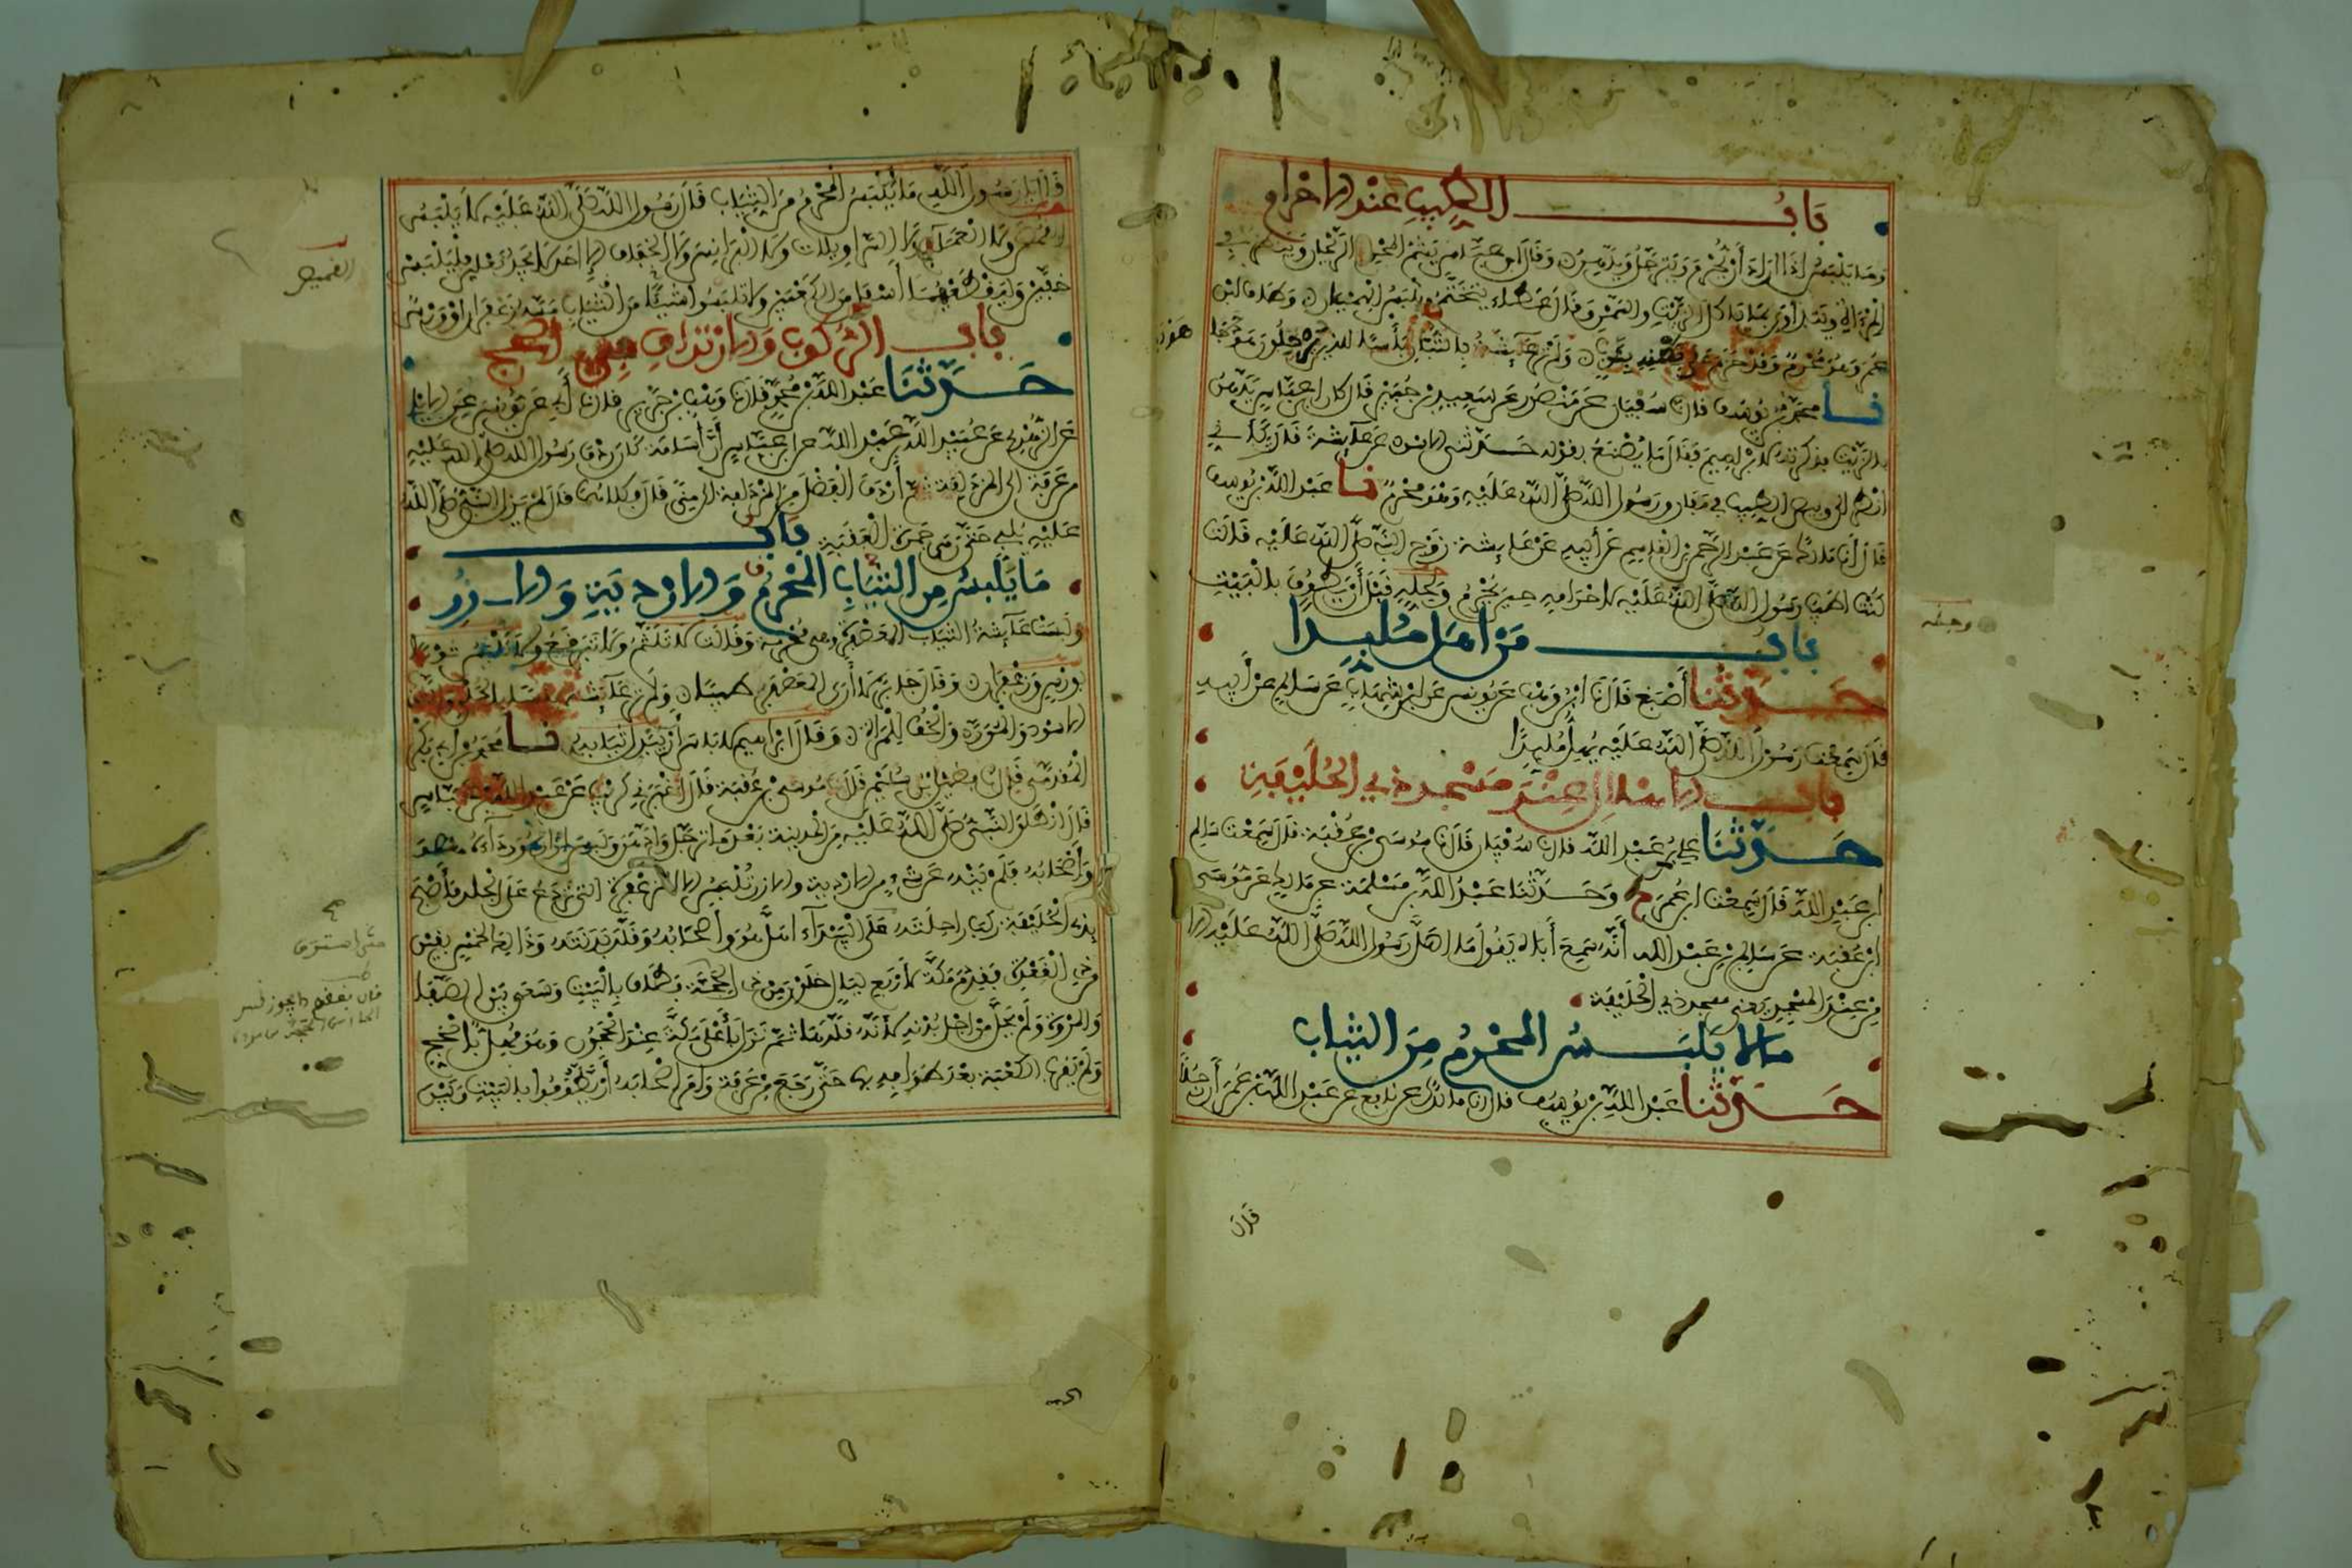 بَابُ الطِّيبِ عِنْدَ الاحْرَامِ
وَمَا يَلْبَسُ إِذَا أَرَادَ أَنْ يُحْرِمَ وَيَتَرَجَّلُ وَيَدَّهِنُ وَقَالَ ابن عَبَّاس يَشَمُّ الْمُحْرِمُ الرَّيْحَانَ وَيَنْظُرُ فِي
الْمِرْآةِ وَيَتَدَاوَى بِمَا يَاكُلُ الزَّيْتَ والسَّمْنَ وَقَالَ عَطَاء يَتَخَتَّمُ وَيَلْبَسُ الْهِمْيَانَ وَطَافَ ابْنُ
عُمَرَ وَهُوَ مُحْرِمٌ وَقَدْ حَزَمَ عَلَى بَطْنِهِ بِثَوْبٍ وَلَمْ تَرَ عَائِشَةُ بِالتُّبَّانِ بَأْسًا لِلذين يرحلون هَوْدَجَهَا
نا محمَّد بن يُوسُف قال نا سُفْيَان عَن مَنْصُور عَن سَعِيدِ بْنِ جُبَيْرٍ قَالَ كان ابن عُمَر يَدَّهِنُ
بِالزَّيْتِ فذكرته لإبْراهِيم فَقَالَ مَا تَصْنَعُ بِقَوْلِه حَدَّثَنِي الاسود عَن عَائِشَةَ قَالَت كَأَنِّي
انْظُر الى وَبيص الطِّيبِ في مَفَارِق رَسُولِ اللَّهِ صَلَّى اللَّهُ عَلَيْهِ وَهُوَ مُحْرِمٌ نا عَبْدُ اللَّهِ بْن يُوسُف
قَالَ أَنا مَالِك عَن عَبْد الرَّحْمَن بْن الْقَاسِم عَن أَبِيهِ عَنْ عَائِشَةَ زَوْجِ النَّبِيِّ صَلَّى اللَّهُ عَلَيْهِ قَالَت
كُنْتُ أُطَيِّبُ رَسُولَ اللَّهِ صَلَّى اللَّهُ عَلَيْهِ لِاحْرَامِهِ حِينَ يُحْرِمُ وَلِحِلِّهِ قَبْلَ أَنْ يَطُوفَ بِالْبَيْتِ
بَابُ مَنْ أَهَلَّ مُلَبِّدًا
حَدَّثَنَا أَصْبَغُ قَالَ أنا ابْنُ وَهْب عَن يُونُسَ عَن ابْنِ شِهَابٍ عَن سَالِم عَنْ أَبِيهِ
قَالَ سَمِعْتُ رَسُولَ اللَّهِ صَلَّى اللَّهُ عَلَيْهِ يُهِلُّ مُلَبِّدًا
بَابُ الاهْلَالِ عِنْدَ مَسْجِدِ ذِي الْحُلَيْفَةِ
حَدَّثَنَا عَلِيّ بْن عَبْدِ اللَّهِ قال نا سُفْيَان قَالَ نا مُوسَى بْن عُقْبَةَ قَالَ سَمِعْتُ سَالِم
ابْنَ عَبْدِ اللَّهِ قَالَ سَمِعْتُ ابْنَ عُمَرَ ح وَحَدَّثَنَا عَبْدُ اللَّهِ بْن مَسْلَمَةَ عَن مَالِك عَن مُوسَى
ابْنِ عُقْبَةَ عَن سَالِمِ بْنِ عَبْدِ اللَّهِ أَنَّهُ سَمِعَ أَبَاهُ يَقُولُ مَا أَهَلَّ رَسُولُ اللَّهِ صَلَّى اللَّهُ عَلَيْهِ الا
مِنْ عِنْدِ الْمَسْجِدِ يَعْنِي مَسْجِدَ ذِي الْحُلَيْفَةِ
مالا يَلْبَسُ الْمُحْرِمُ مِنَ الثِّيَابِ
حَدَّثَنَا عَبْدُ اللَّهِ بْن يُوسُف قَالَ أنا مَالِكٌ عَن نَافِعٍ عَن عَبْدِ اللَّهِ بْنِ عُمَرَ أَنَّ رَجُلًا
قَالَ
قَالَ يَا رَسُولَ اللَّهِ مَا يَلْبَسُ الْمُحْرِمُ مِنَ الثِّيَابِ قَالَ رَسُولُ اللَّهِ صَلَّى اللَّهُ عَلَيْهِ لَا يَلْبَسُ
الْقُمُصَ وَلَا الْعَمَائِمَ وَلَا السَّرَاوِيلَاتِ وَلَا الْبَرَانِسَ وَلَا الْخِفَافَ إِلا أَحَد لَا يَجِدُ نَعْلَيْنِ فَلْيَلْبَسْ
خُفَّيْنِ وَلْيَقْطَعْهُمَا أَسْفَلَ مِنَ الْكَعْبَيْنِ وَلا تَلْبَسُوا شَيْئًا مِنَ الثِّيَابِ مَسَّهُ زَعْفَرَان أَوْ وَرْسٌ
بَابُ الرُّكُوبِ وَالارْتِدَافِ فِي الْحَجِّ
حَدَّثَنَا عَبْدُ اللَّهِ بْن مُحَمَّدٍ قَالَ نا وَهْب بْن جَرِير قَالَ نا أَبِي عَن يُونُسَ عَن الايْلي
عَن الزُّهْرِي عَن عُبَيْدِ اللَّهِ بْن عَبْدِ اللَّهِ عن ابن عَبَّاس أَنَّ أُسَامَةَ كَانَ رِدْفَ رَسُولِ اللَّهِ صَلَّى اللَّهُ عَلَيْهِ
مِن عَرَفَةَ إلى الْمُزْدَلِفَةِ ثُمَّ أَرْدَفَ الْفَضْلَ مِنَ الْمُزْدَلِفَةِ إلى مِنًى قَالَ فَكِلَاهُمَا قَالَ لَمْ يَزَلِ النَّبِيُّ صَلَّى اللَّهُ
عَلَيْهِ يُلَبِّي حَتَّى رَمَى جَمْرَةَ الْعَقَبَةِ بَابُ
مَا يَلْبَسُ مِنَ الثِّيَابِ الْمُحْرِمُ وَالارْدِيَةِ وَالازُرِ
وَلَبِسَتْ عَائِشَةُ الثِّيَابَ الْمُعَصْفَرَةَ وهي مُحْرِمَة وَقَالَت لَا تَلَثَّمْ وَلَا تَتَبَرْقَعْ وَلَا تَلْبَسْ ثَوْبًا
بِوَرْسٍ وَزَعْفَرَانٍ وَقَالَ جَابِر لَا أَرَى الْمُعَصْفَرَ طِيبًا وَلَمْ تَرَ عَائِشَةُ بَأْسًا بِالْحُلِيِّ وَالثَّوْبِ
الاسْوَدِ وَالْمُوَرَّدِ وَالْخُفِّ لِلْمَرْأَةِ وَقَالَ إبْرَاهِيم لَا بَأْسَ أَنْ يُبْدِلَ ثِيَابَهُ نا مُحَمَّد بْن أَبِي بَكْر
الْمُقَدَّمِي قَالَ نا فُضَيْل بْن سُلَيْمَن قَالَ نا مُوسَى بْن عُقْبَةَ قَالَ أَخْبَرَنِي كُرَيْب عَنْ عَبْدِ اللَّهِ بْن عَبَّاس
قَالَ انْطَلَقَ النَّبِيُّ صَلَّى اللَّهُ عَلَيْهِ مِنَ الْمَدِينَةِ بَعْدَمَا تَرَجَّلَ وَادَّهَنَ وَلَبِسَ إِزَارَهُ وَرِدَاءَهُ هُوَ
وَأَصْحَابُهُ فَلَمْ يَنْهَ عَن شَيْءٍ مِن الارْدِيَةِ والازُرِ تُلْبَسُ الا الْمُزَعْفَرَةَ التي تَرْدَعُ عَلَى الْجِلْدِ فَأَصْبَحَ
بِذِي الْحُلَيْفَةِ رَكِبَ رَاحِلَتَهُ عَلَى الْبَيْدَاءِ أَهَلَّ هُوَ وَأَصْحَابُهُ وَقَلَّدَ بَدَنَتَهُ وَذَلِكَ لِخَمْسٍ بَقِينَ
مِن ذِي الْقَعْدَةِ فَقَدِمَ مَكَّةَ لِأَرْبَعِ لَيَالٍ خَلَوْنَ مِنْ ذِي الْحِجَّةِ فَطَافَ بِالْبَيْتِ وَسَعَى بَيْنَ الصَّفَا
وَالْمَرْوَةِ وَلَمْ يَحِلَّ مِنْ أَجْلِ بُدْنِهِ لأَنَّهُ قَلَّدَهَا ثُمَّ نَزَلَ بِأَعْلَى مَكَّةَ عِنْدَ الْحَجُونِ وَهُوَ مُهِلٌّ بِالْحَجِّ
وَلَمْ يَقْرَبِ الْكَعْبَةَ بَعْدَ طَوَافِهِ بِهَا حَتَّى رَجَعَ مِنْ عَرَفَةَ وَأَمَرَ أَصْحَابَهُ أَنْ يَطَّوَّفُوا بِالْبَيْتِ وَبَيْنَ
القميص
حتى استوى